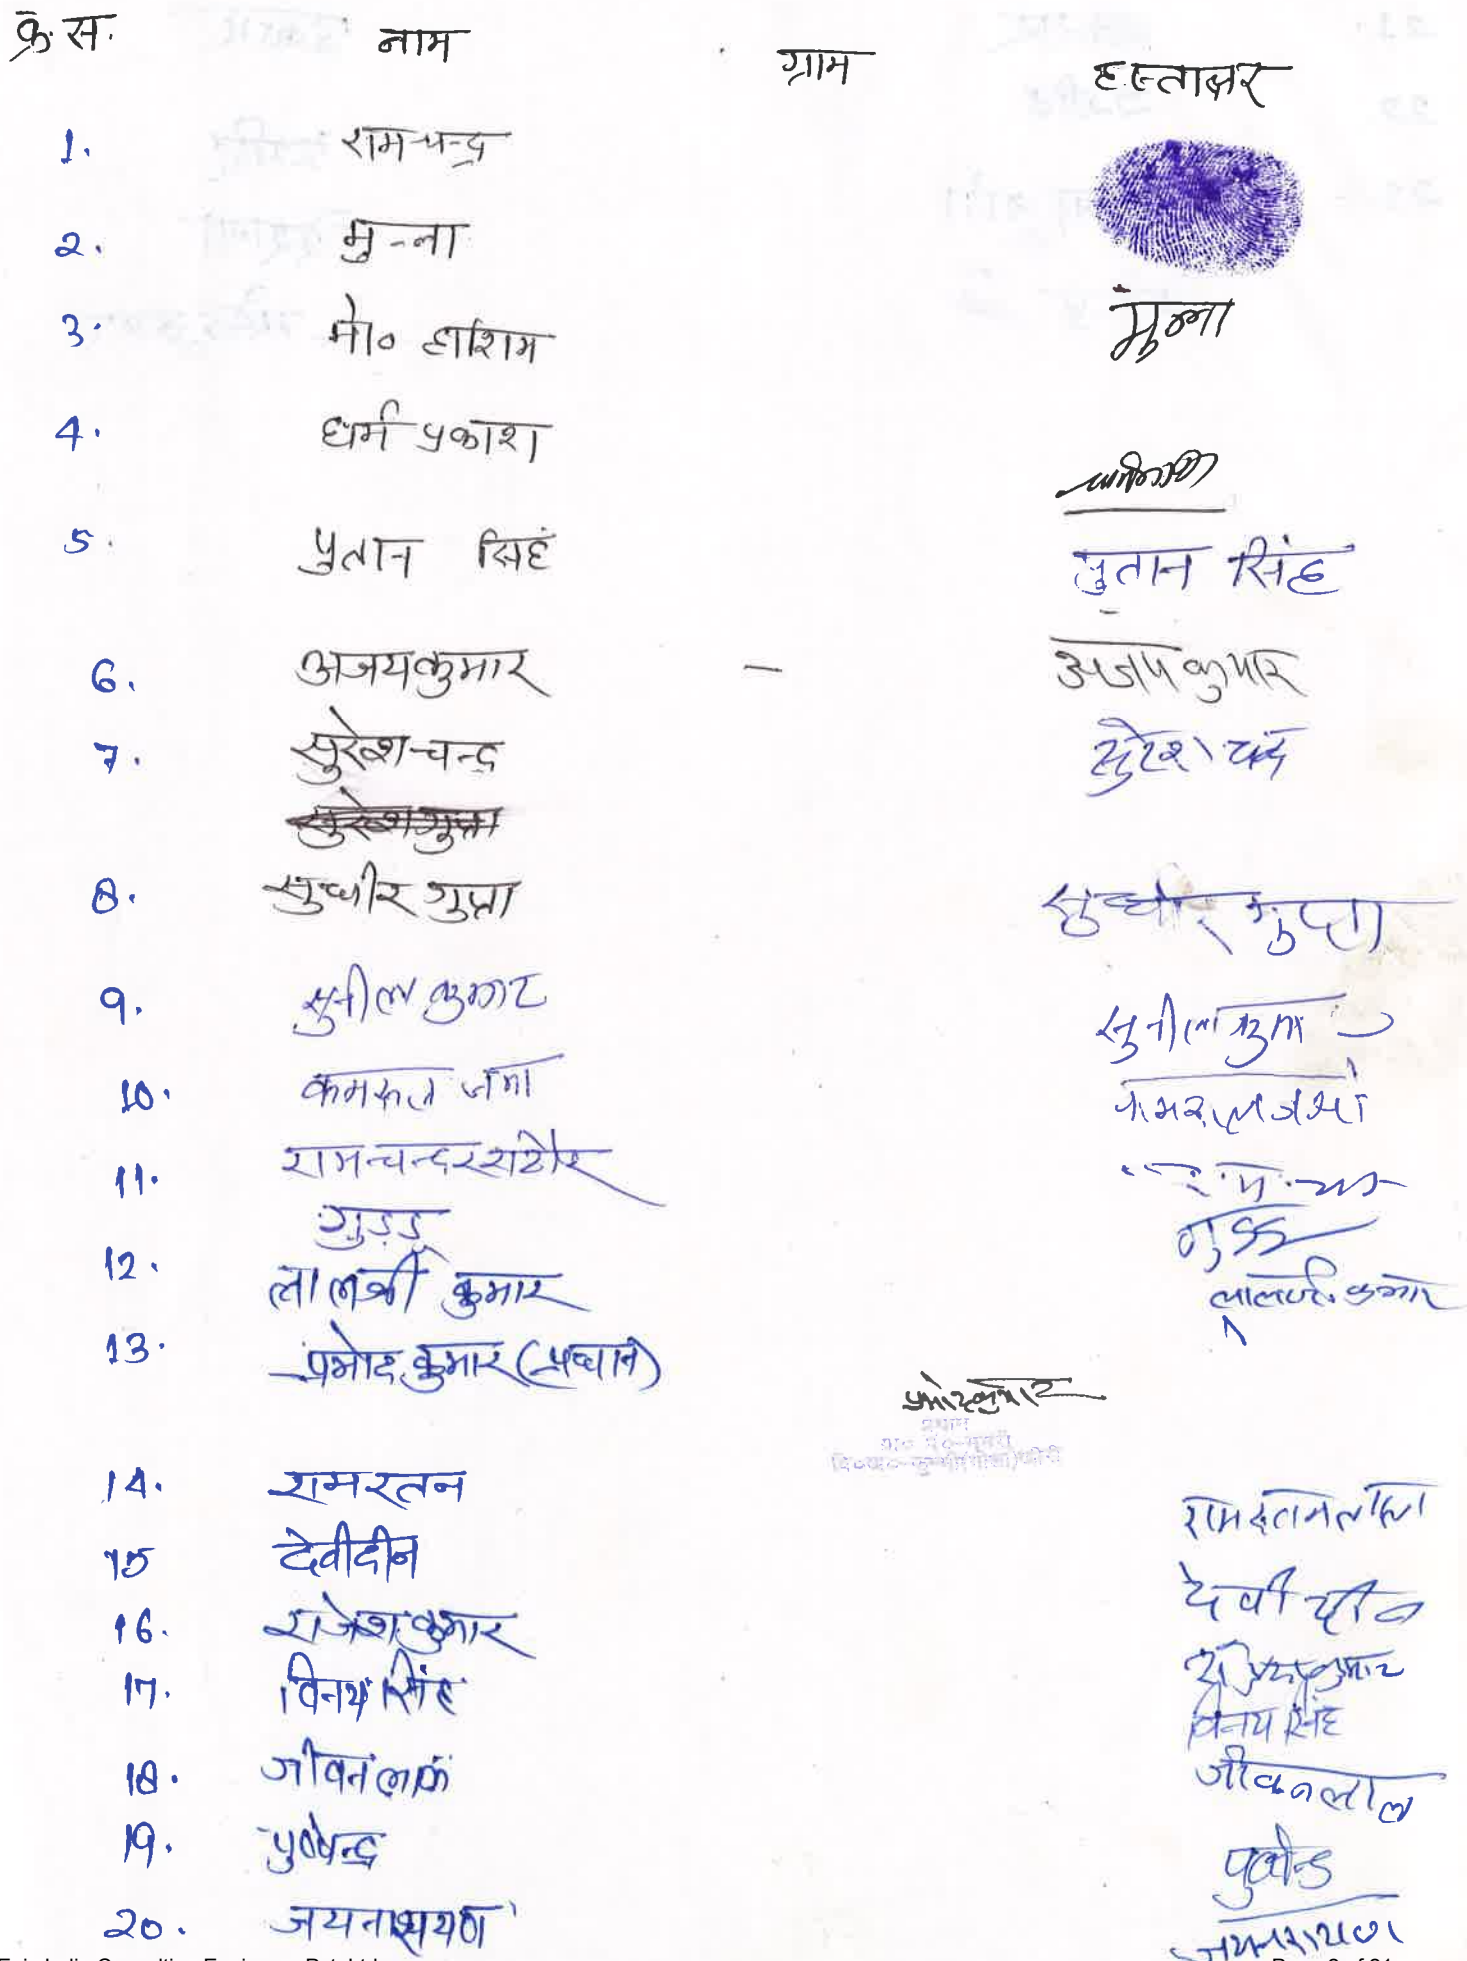 क्र.स. नाम ग्राम हस्ताक्षर
1. रामचन्द्र
2. मुन्ना
3. मो० हाशिम मुन्ना
4. धर्म प्रकाश
5. पुतान सिहं पुतान सिंह
6. अजयकुमार — अजय कुमार
7. सुरेश चन्द्र सुरेश चंद्र
सुरेश गुप्ता
8. सुधीर गुप्ता सुधीर गुप्ता
9. सुनील कुमार सुनील कुमार
10. कमरूल जमा
11. रामचन्दर राठौर
गुड्डू गुड्डू
12. लालजी कुमार लालजी कुमार
13. प्रमोद कुमार (प्रधान)
प्रमोद कुमार
प्रधान
14. रामरतन रामरतन लाल
15 देवीदीन देवी दीन
16. राजेश कुमार राजेश कुमार
17. विनय सिंह विनय सिंह
18. जीवन लाल जीवनलाल
19. पुष्पेन्द्र पुष्पेन्द्र
20. जयनारायण जयनारायण